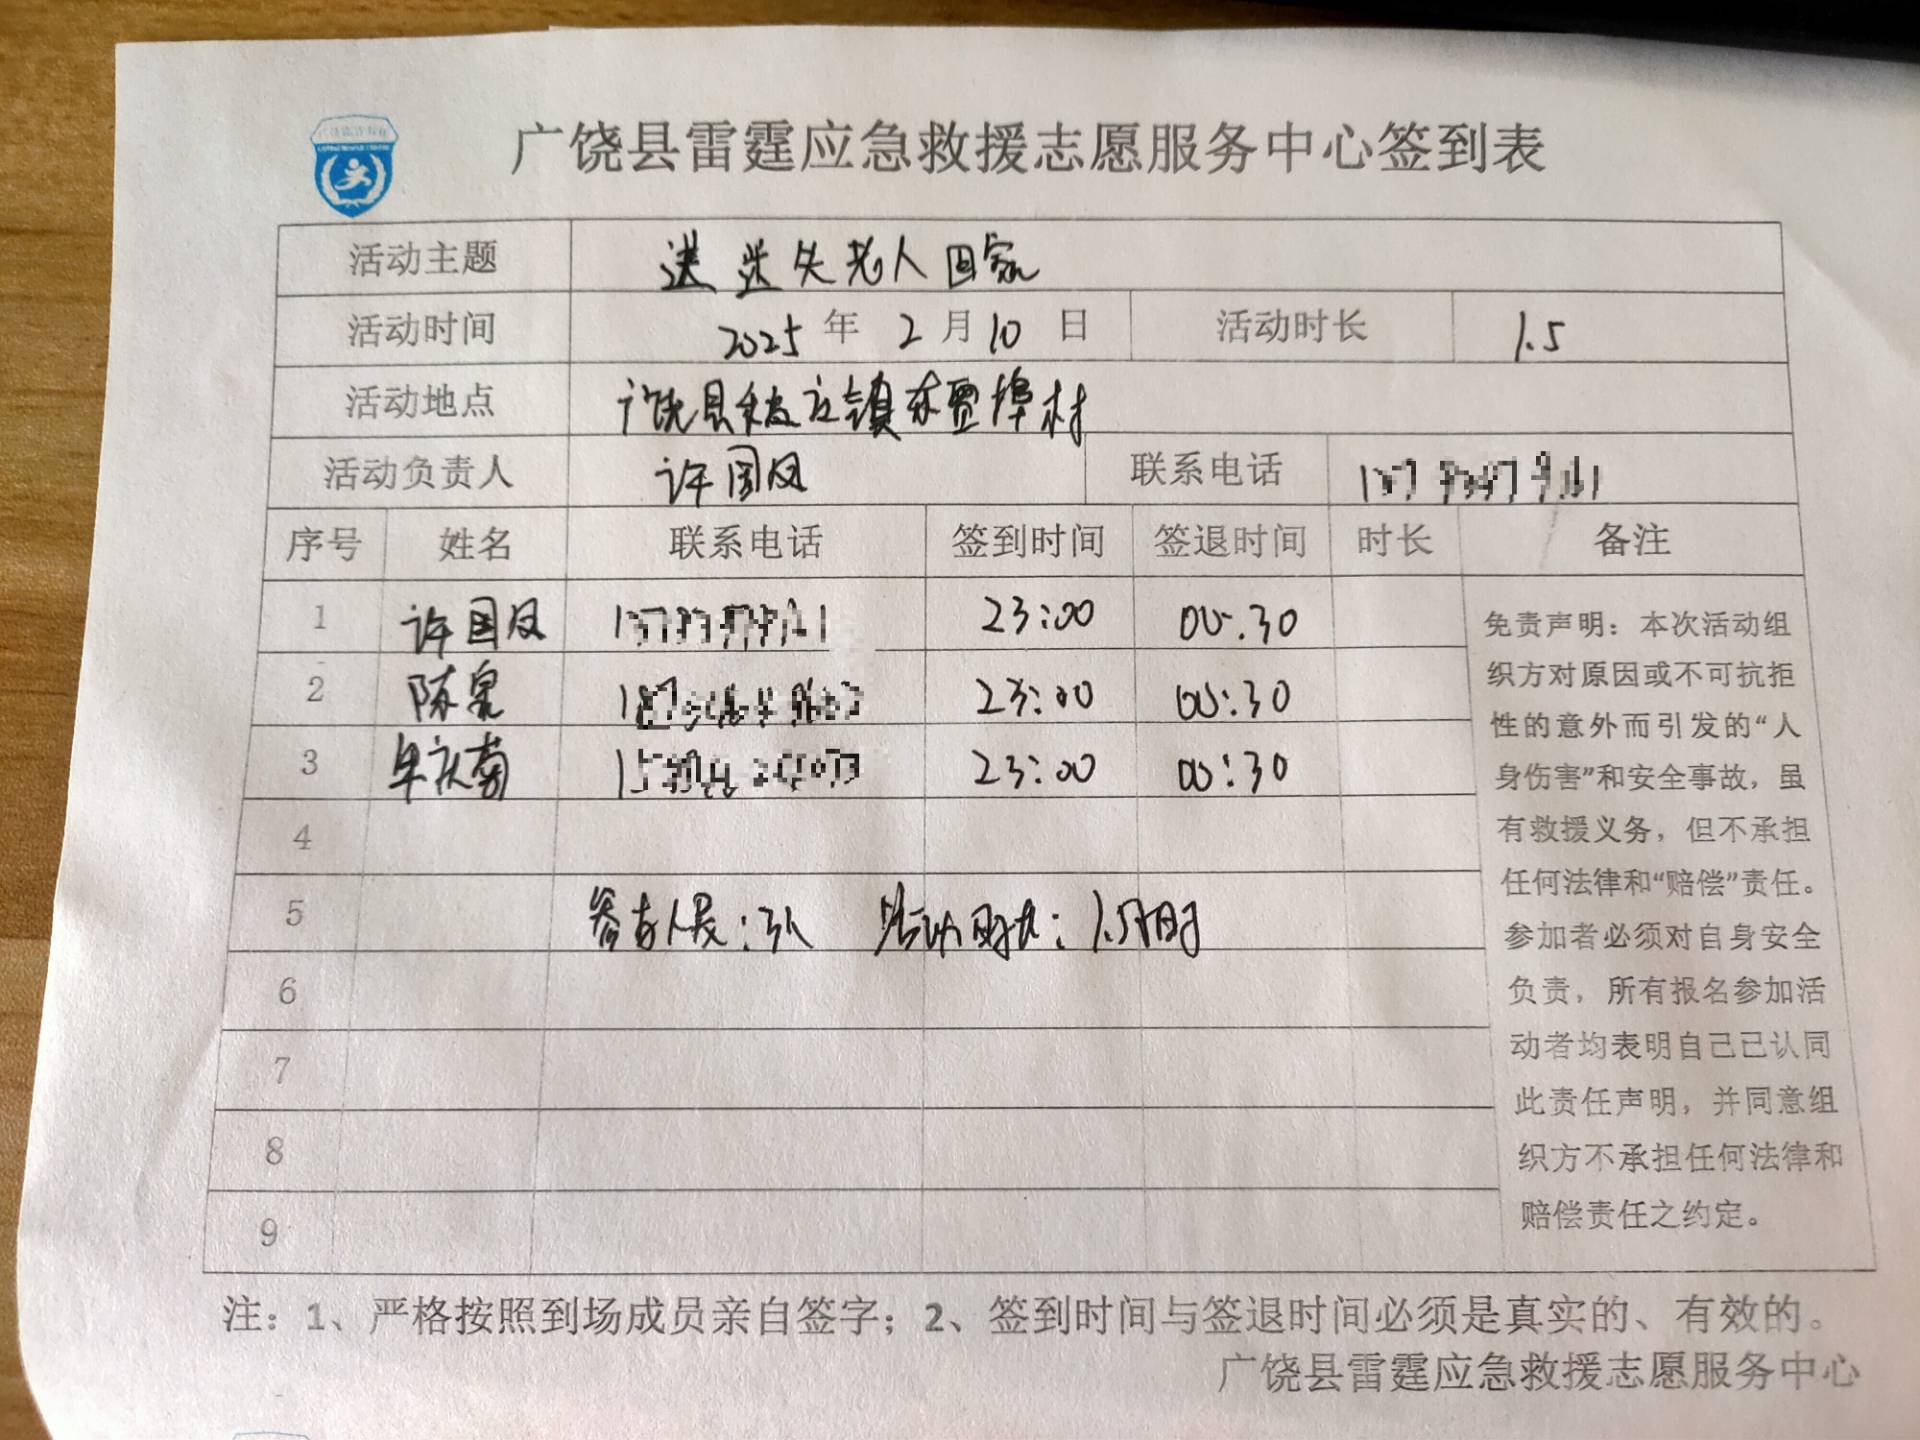 广饶县雷霆应急救援志愿服务中心签到表
活动主题 送迷失老人回家
活动时间 2025 年 2 月 10 日 活动时长 1.5
活动地点 广饶县 镇东贾 村
活动负责人 许国凤 联系电话
序号 姓名 联系电话 签到时间 签退时间 时长 备注
1 许国凤 23:00 00:30
2 陈泉 23:00 00:30
3 牟庆菊 23:00 00:30
4
5 参与人员:3人 活动时长:1.5小时
6
7
8
9
免责声明：本次活动组
织方对原因或不可抗拒
性的意外而引发的“人
身伤害”和安全事故，虽
有救援义务，但不承担
任何法律和“赔偿”责任。
参加者必须对自身安全
负责，所有报名参加活
动者均表明自己已认同
此责任声明，并同意组
织方不承担任何法律和
赔偿责任之约定。
注：1、严格按照到场成员亲自签字；2、签到时间与签退时间必须是真实的、有效的。
广饶县雷霆应急救援志愿服务中心